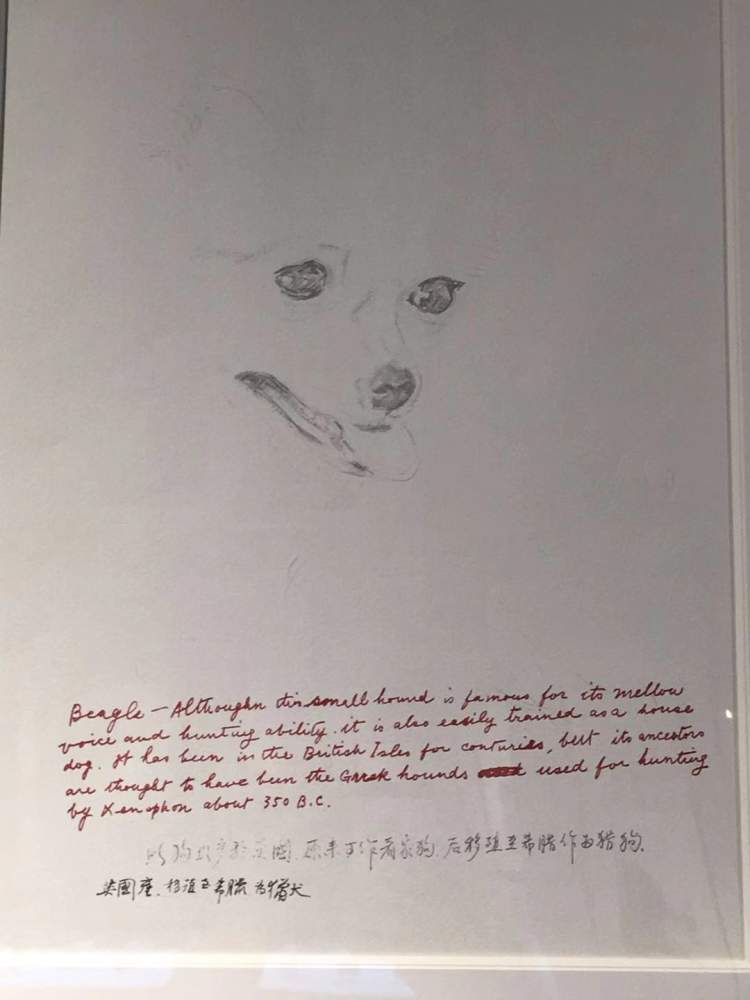 Beagle — Althoughn this small hound is famous for its mellow
voice and hunting ability. it is also easily trained as a house
dog. It has been in the British Isles for conturies, but its ancestors
are thought to have been the Greek hounds used for hunting
by Xenophon about 350 B.C.
狗 英國. 原来可作看家狗. 后移殖至希腊作为猎狗.
英國產. 移殖至希臘为獵犬